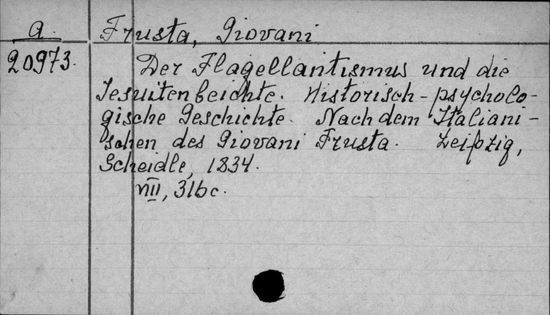 A. Frusta, Giovani
20973. Der Flagellantismus und die
Jesuitenbeichte. Historisch-psycholo-
gische Geschichte. Nach dem Italiani-
schen des Giovani Frusta. Leipzig,
Scheidle, 1834.
VIII, 316c.